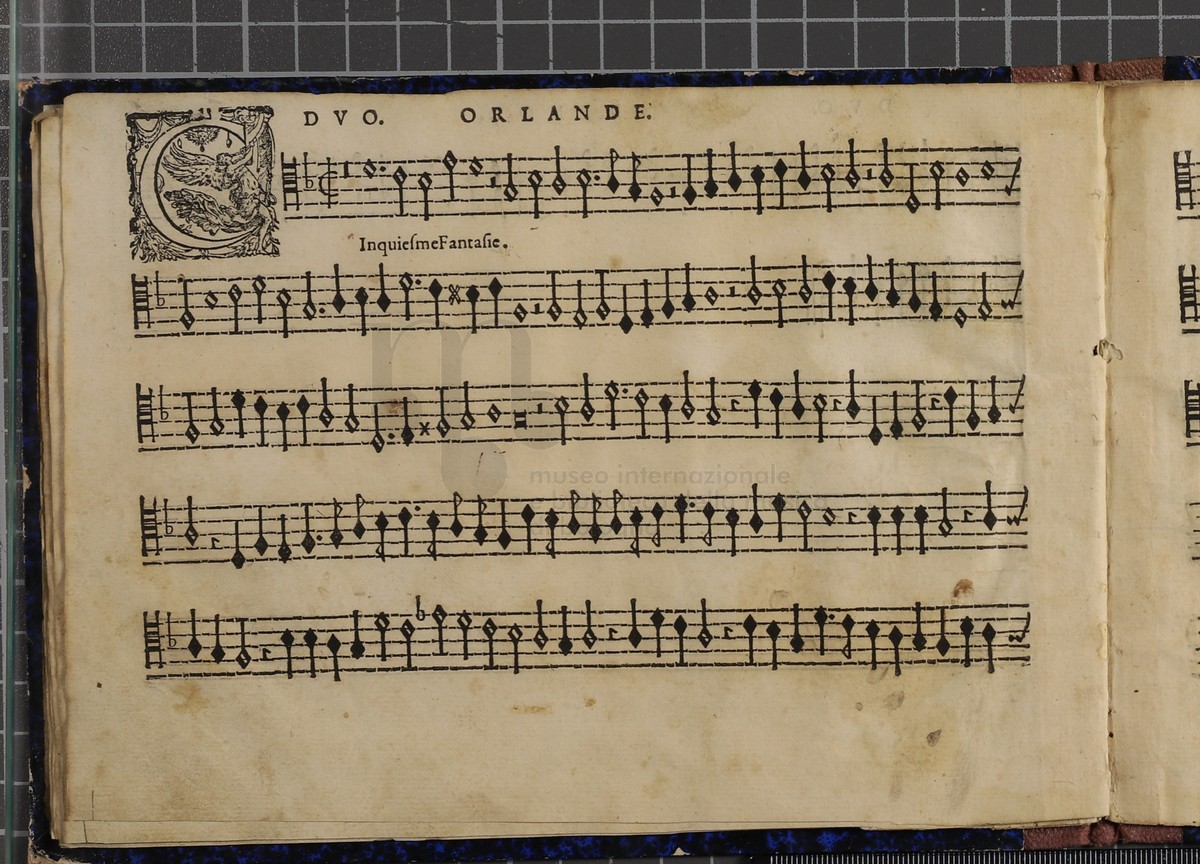 DVO. ORLANDE.
C
InquiesmeFantasie.
museo internazionale